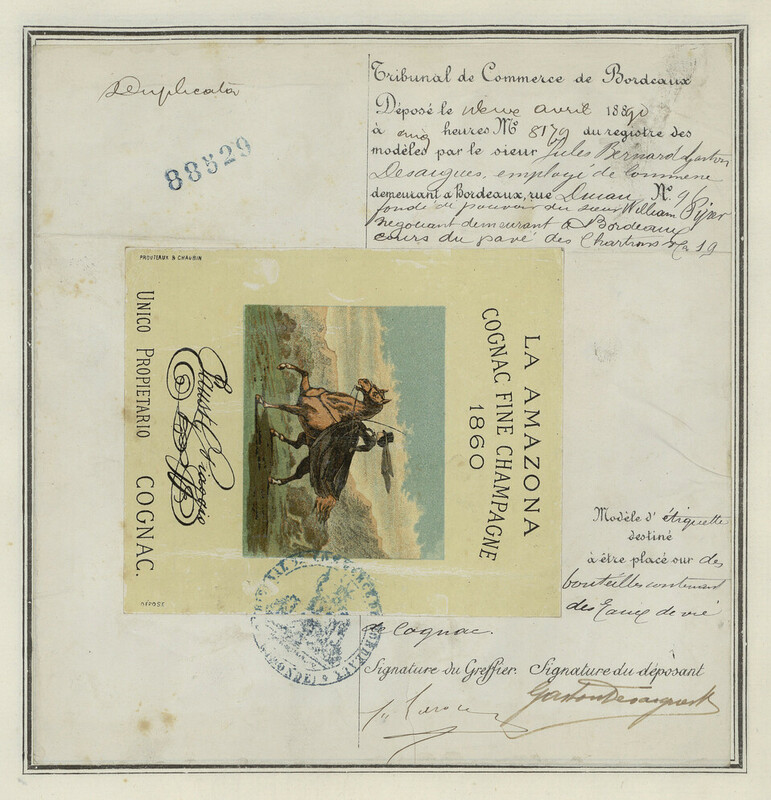 Duplicata
88529
Tribunal de Commerce de Bordeaux
Déposé le deux avril 1890
à cinq heures No 8179 du registre des
modèles par le sieur Jules Bernard Gaston
Desaigues, employé de commerce
demeurant à Bordeaux, rue No 9
fondé de pouvoir du sieur William
négociant demeurant à Bordeaux
cours du pavé des Chartrons No 19
PROUTEAUX & CHAUBIN
LA AMAZONA
COGNAC FINE CHAMPAGNE
1860
UNICO PROPIETARIO COGNAC.
DÉPOSÉ
Modèle d'étiquette
destiné
à être placé sur des
bouteilles contenant
des Eaux de vie
de Cognac.
TRIBUNAL DE COMMERCE DE BORDEAUX
(GIRONDE)
Signature du Greffier. Signature du déposant